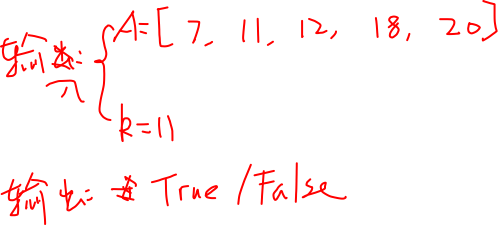 输入: A=[7, 11, 12, 18, 20]
k=11
输出: True/False